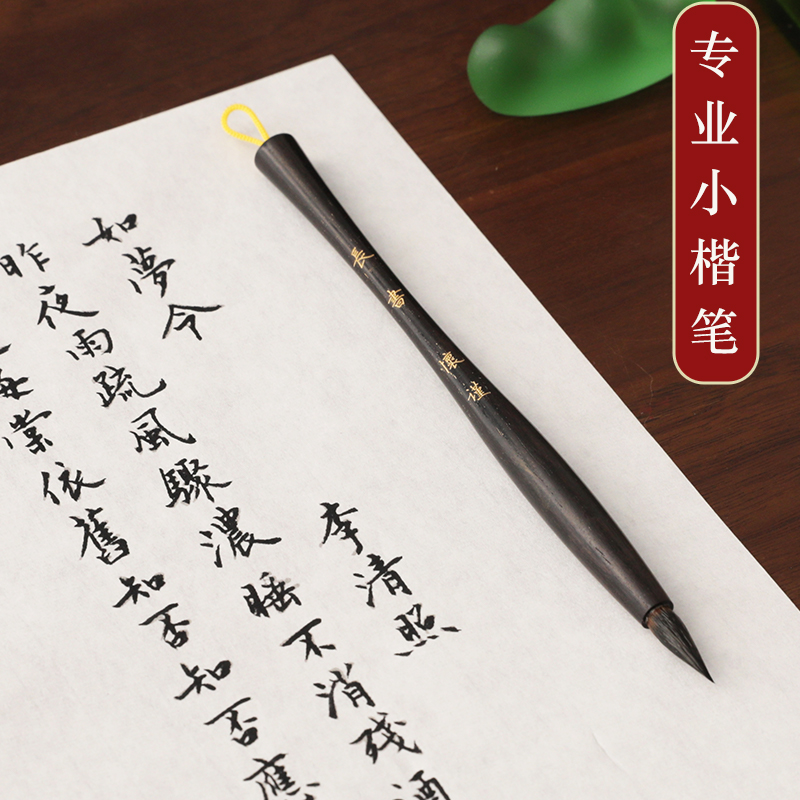 专业小楷笔
長書懷謹
如夢令
李清照
昨夜雨疏風驟濃睡不消残酒
海棠依舊知否知否應